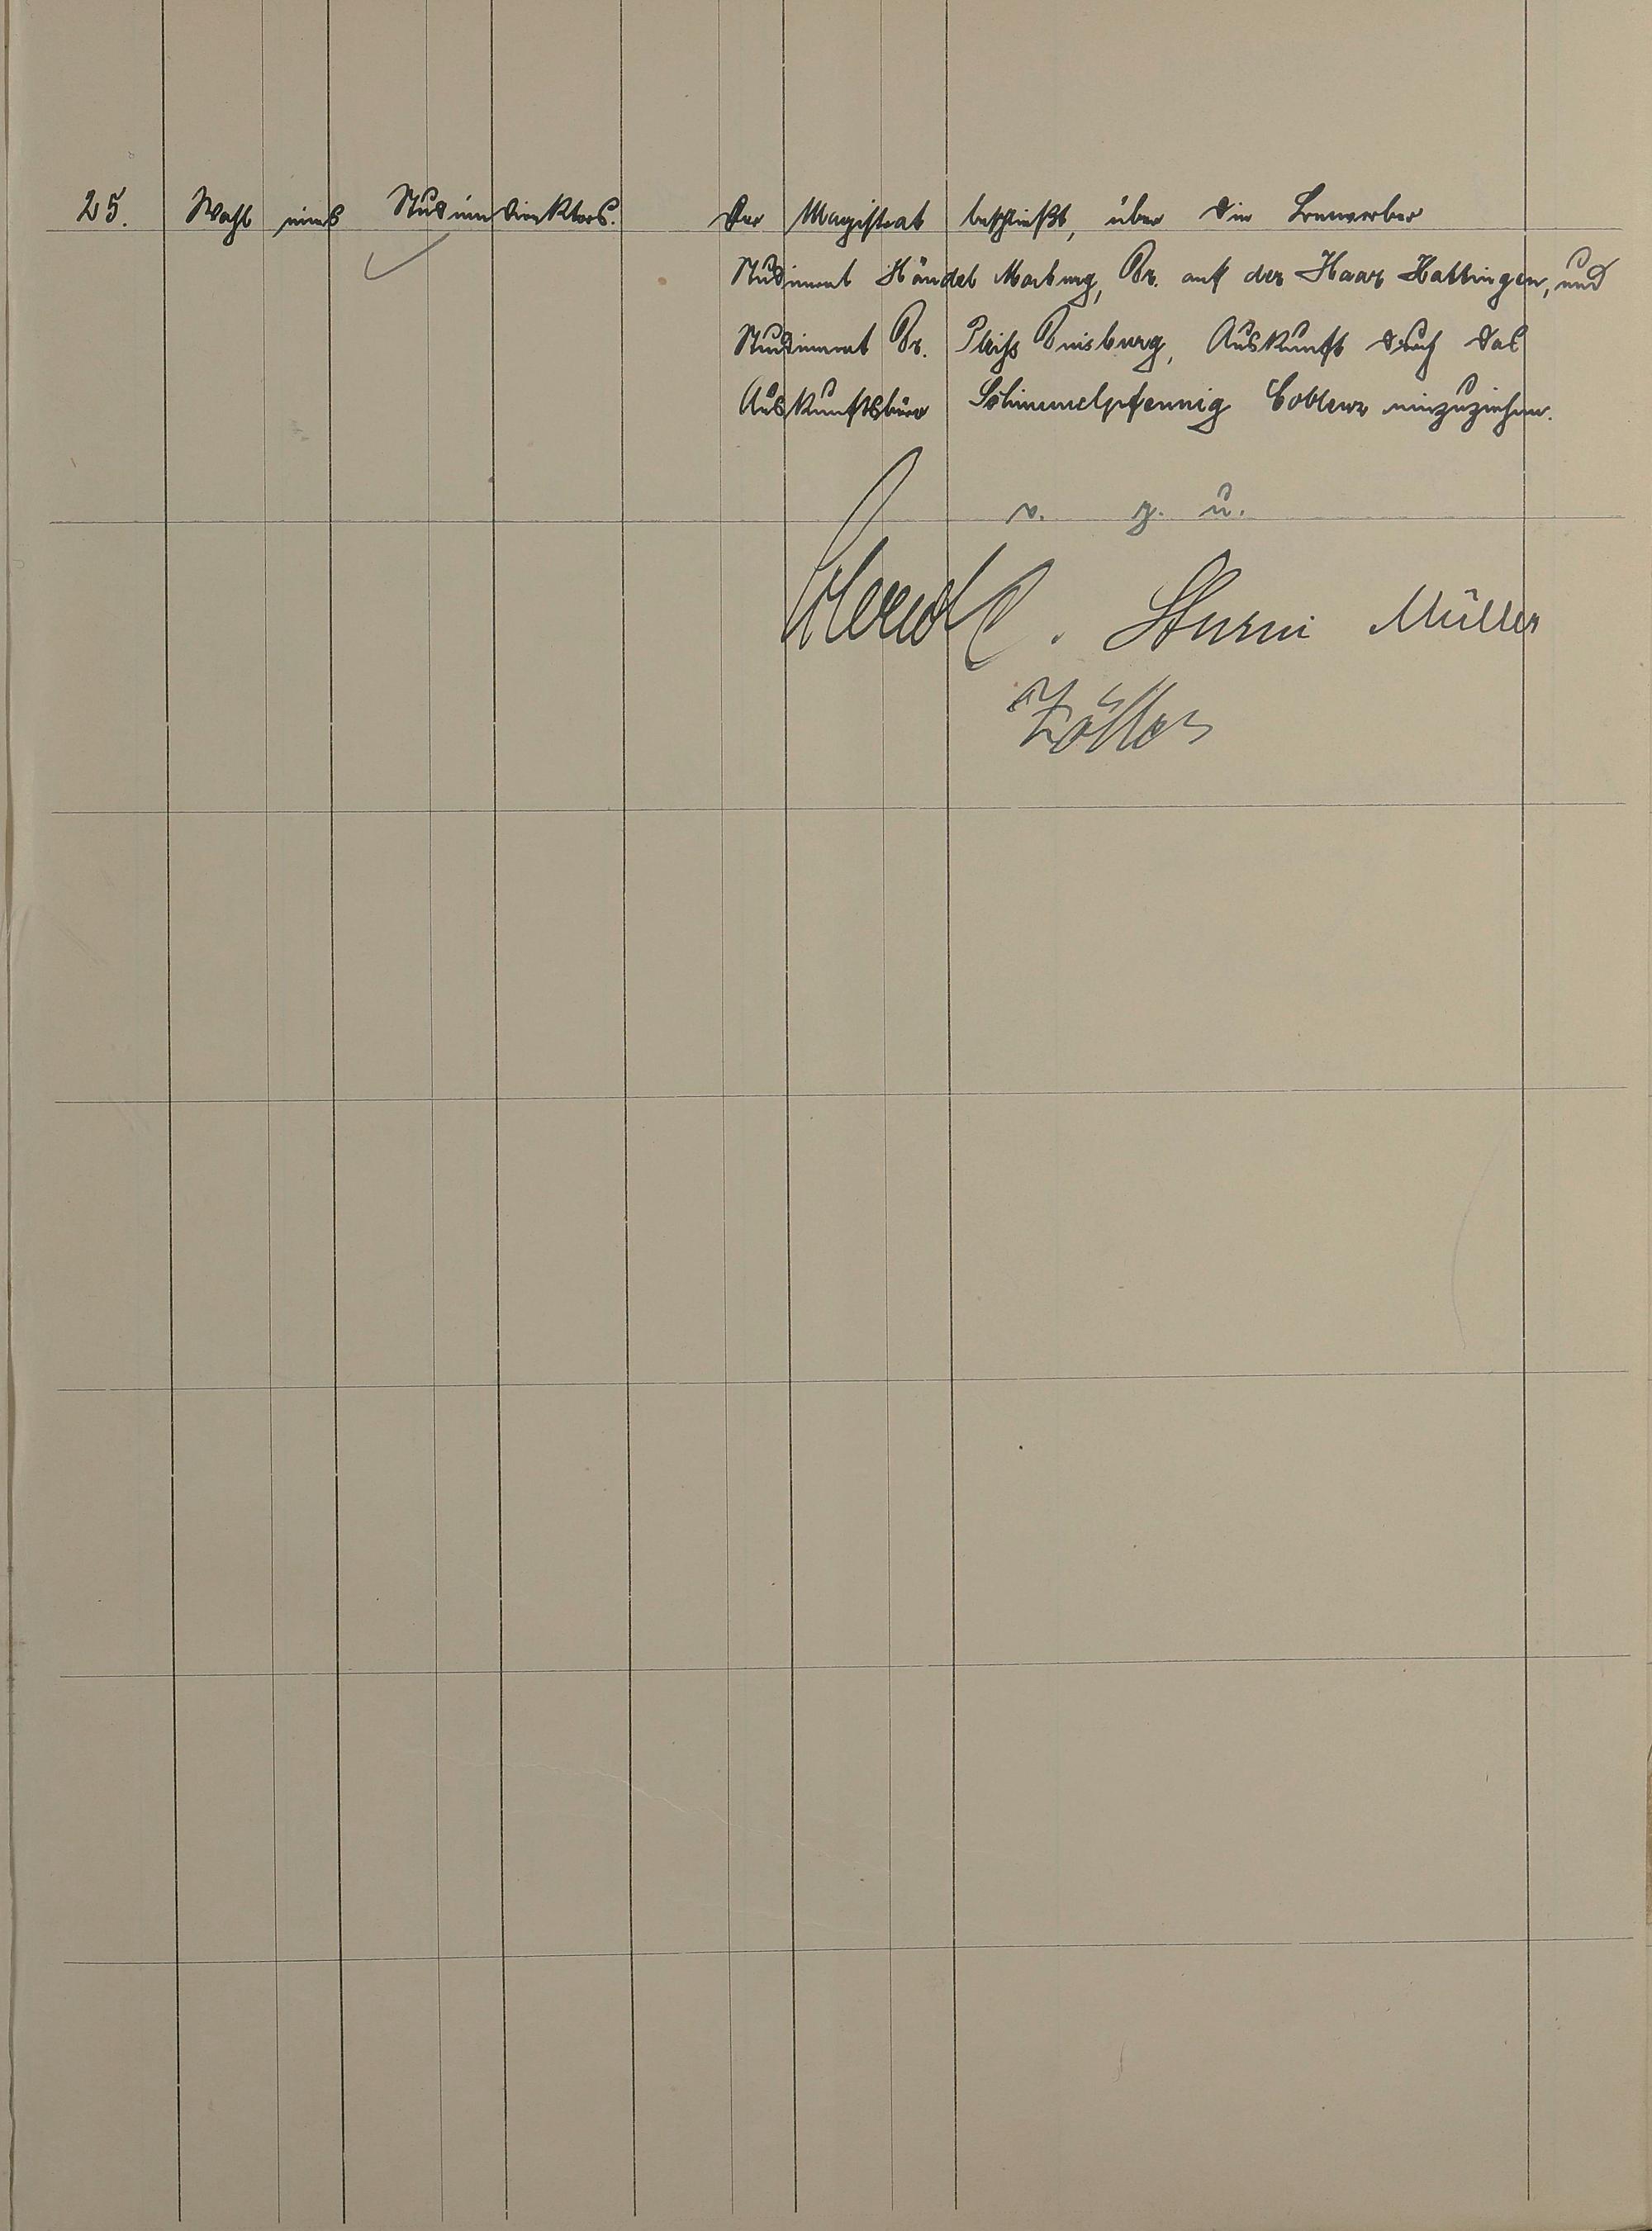 25. Wahl eines Studiendirektors. Der Magistrat beschließt, über die Bewerber
Studienrat Händel Marburg, Dr. auf der Haar Hattingen, und
Studienrat Dr. Pleiss Duisburg, Auskunft durch das
Auskunftsbüro Schimmelpfennig Coblenz einzuziehen.
v. g. u.
Sturm Müller
Zöller